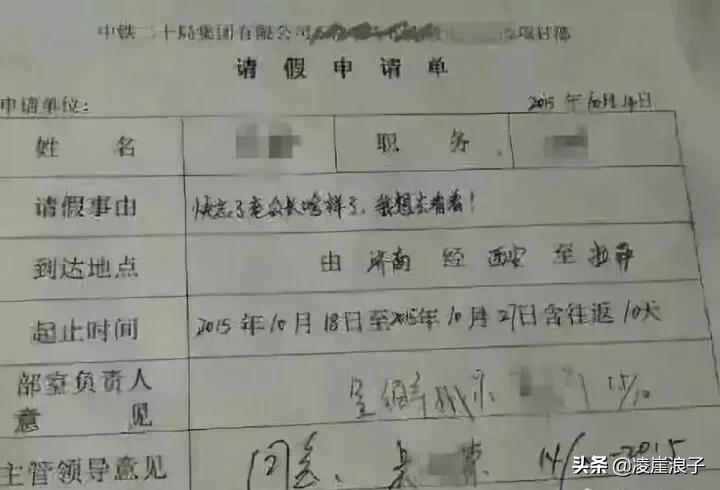 中铁二十局集团有限公司 项目部
请假申请单
申请单位: 2015 年 10月 14日
姓名 职务
请假事由 快忘了老公长啥样了，我想去看看！
到达地点 由 济南 经 西安 至 拉萨
起止时间 2015 年 10 月 18日至2015年 10 月 27日含往返 10天
部室负责人
意见 15/10
主管领导意见 同意、 14/ -2015
头条 @凌崖浪子